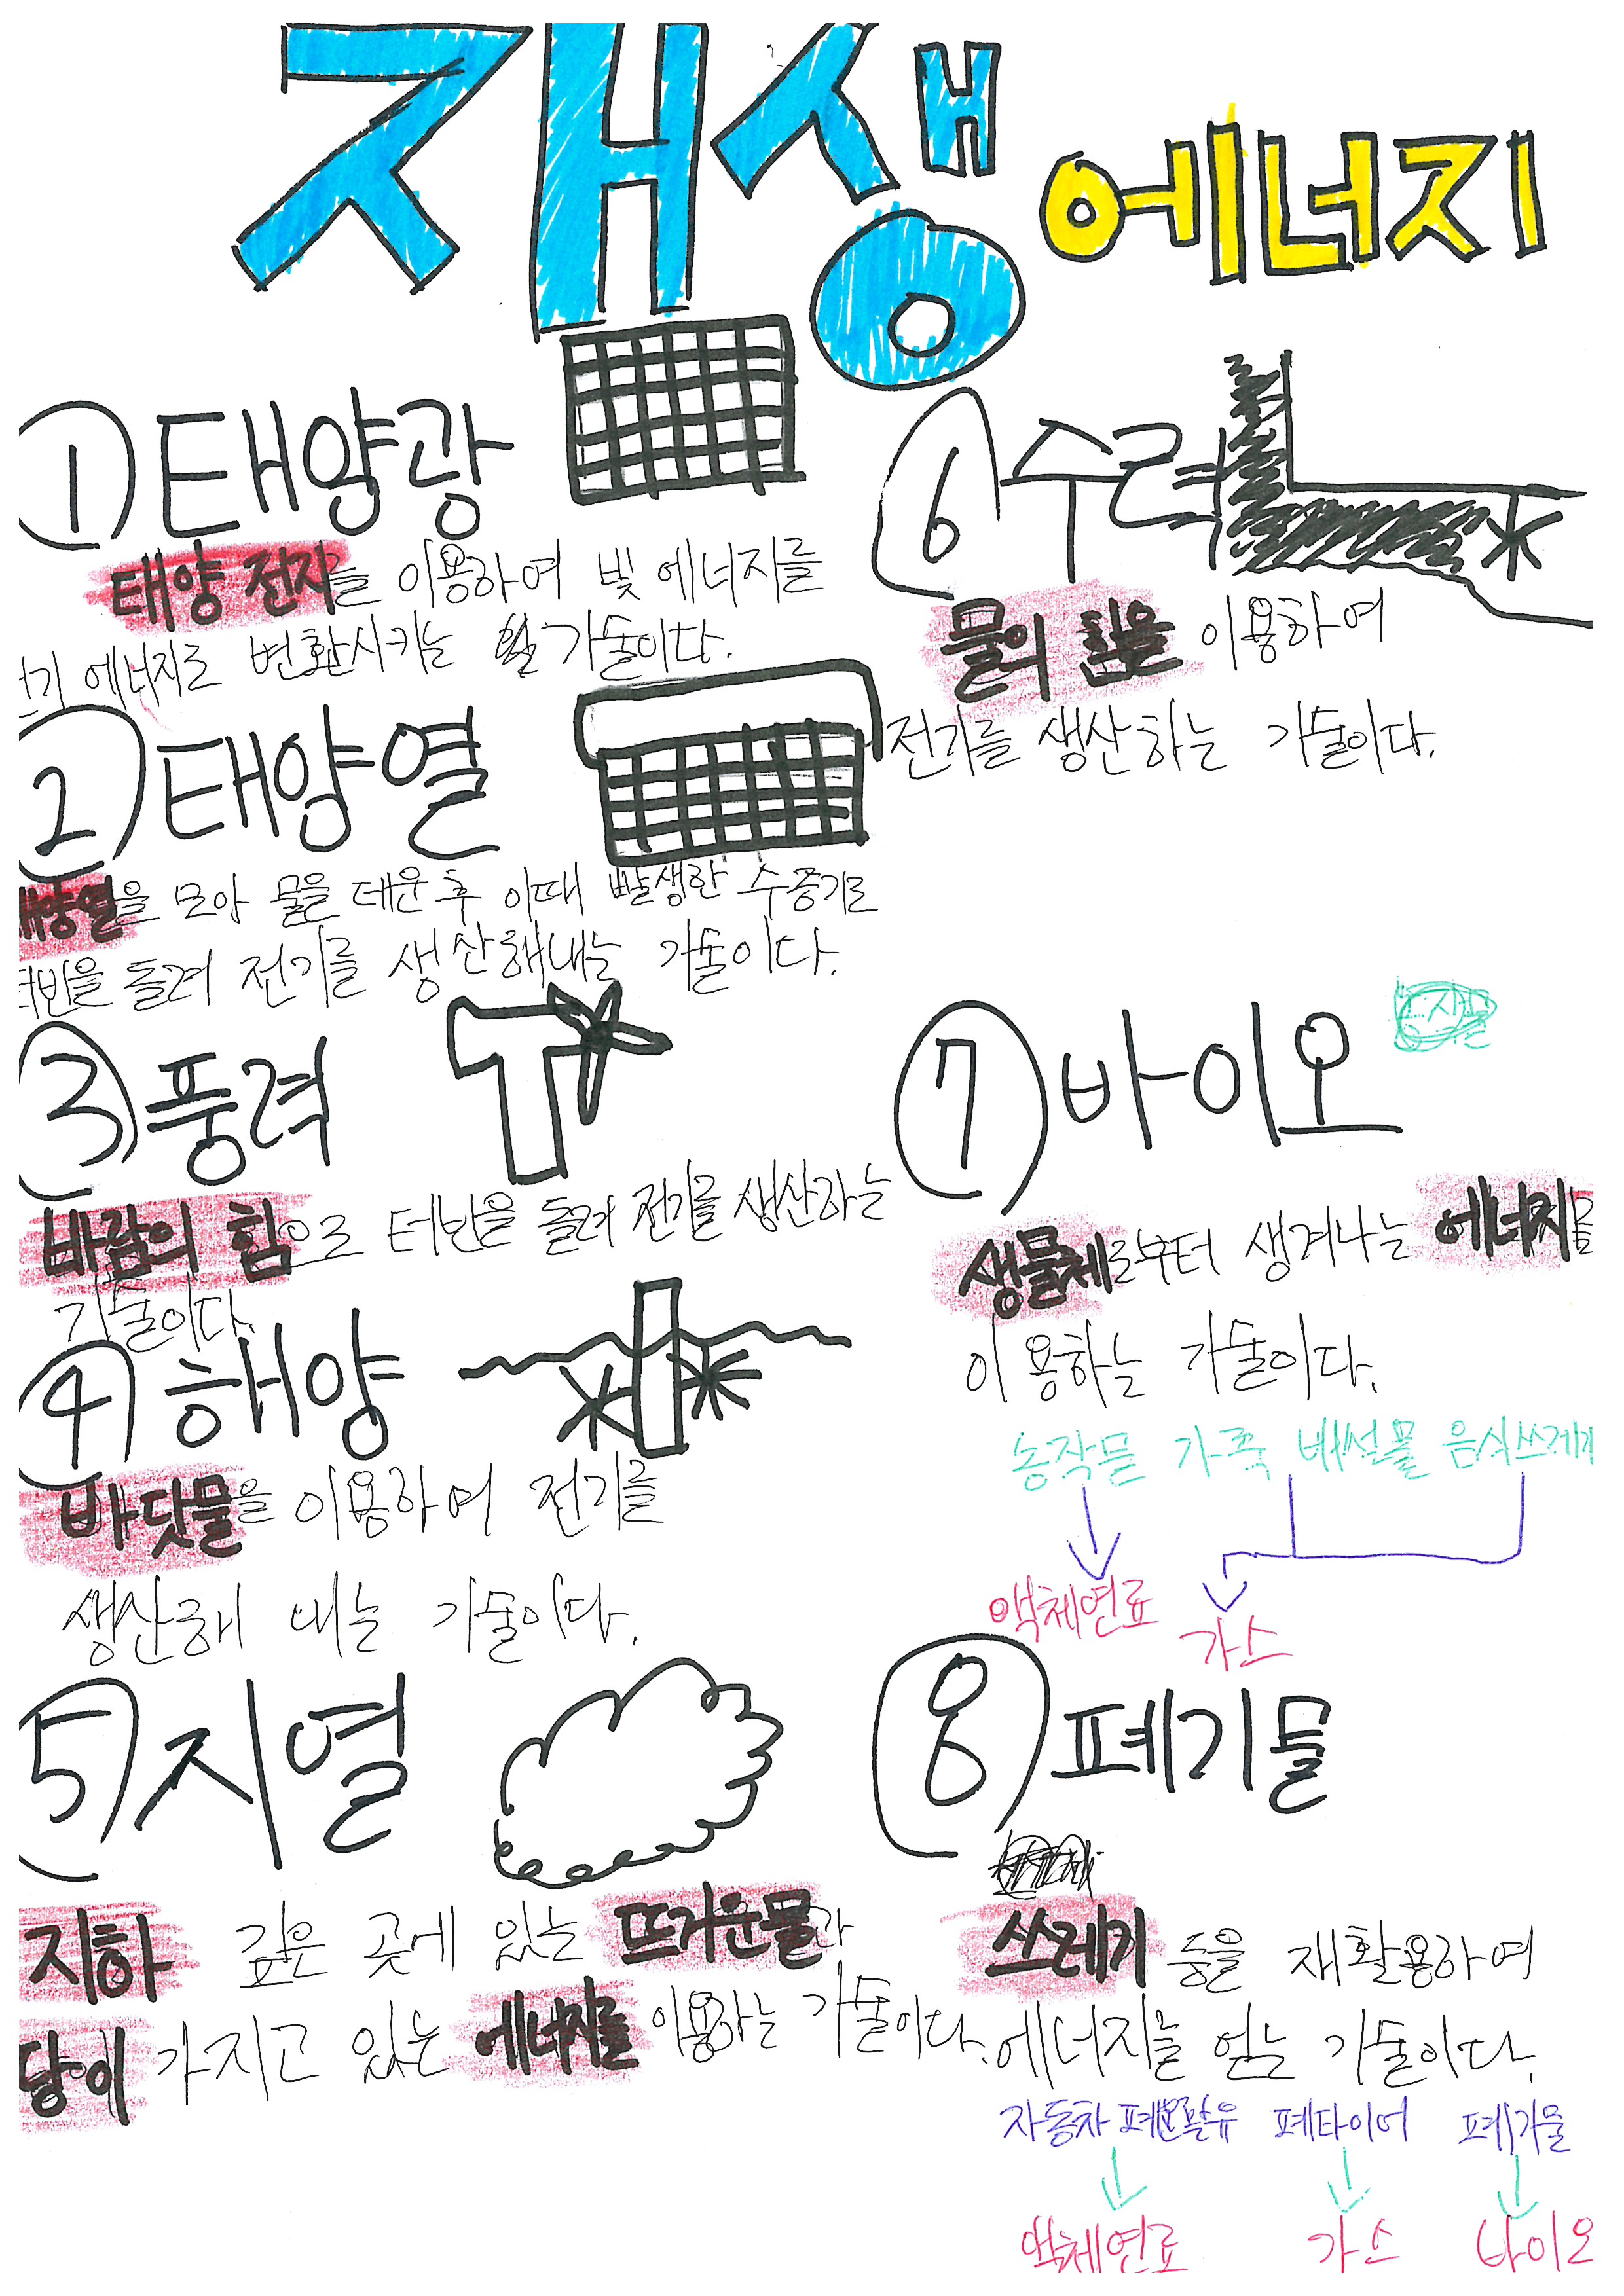 재생에너지
① 태양광
태양 전지를 이용하여 빛 에너지를
에너지로 변환시키는 기술이다.
② 태양열
태양열을 모아 물을 데운 후 이때 발생한 수증기로
터빈을 돌려 전기를 생산해내는 기술이다.
③ 풍력
바람의 힘으로 터빈을 돌려 전기를 생산하는
기술이다.
④ 해양
바닷물을 이용하여 전기를
생산해 내는 기술이다.
⑤ 지열
지하 깊은 곳에 있는 뜨거운물과
땅이 가지고 있는 에너지를 이용하는 기술이다.
⑥ 수력
물의 힘을 이용하여
전기를 생산하는 기술이다.
⑦ 바이오
생물체로부터 생겨나는 에너지를
이용하는 기술이다.
농작물 가축 배설물 음식쓰레기
액체연료
가스
⑧ 폐기물
쓰레기 중을 재활용하여
에너지를 얻는 기술이다.
자동차 폐윤활유 폐타이어 폐기물
액체연료 가스 바이오